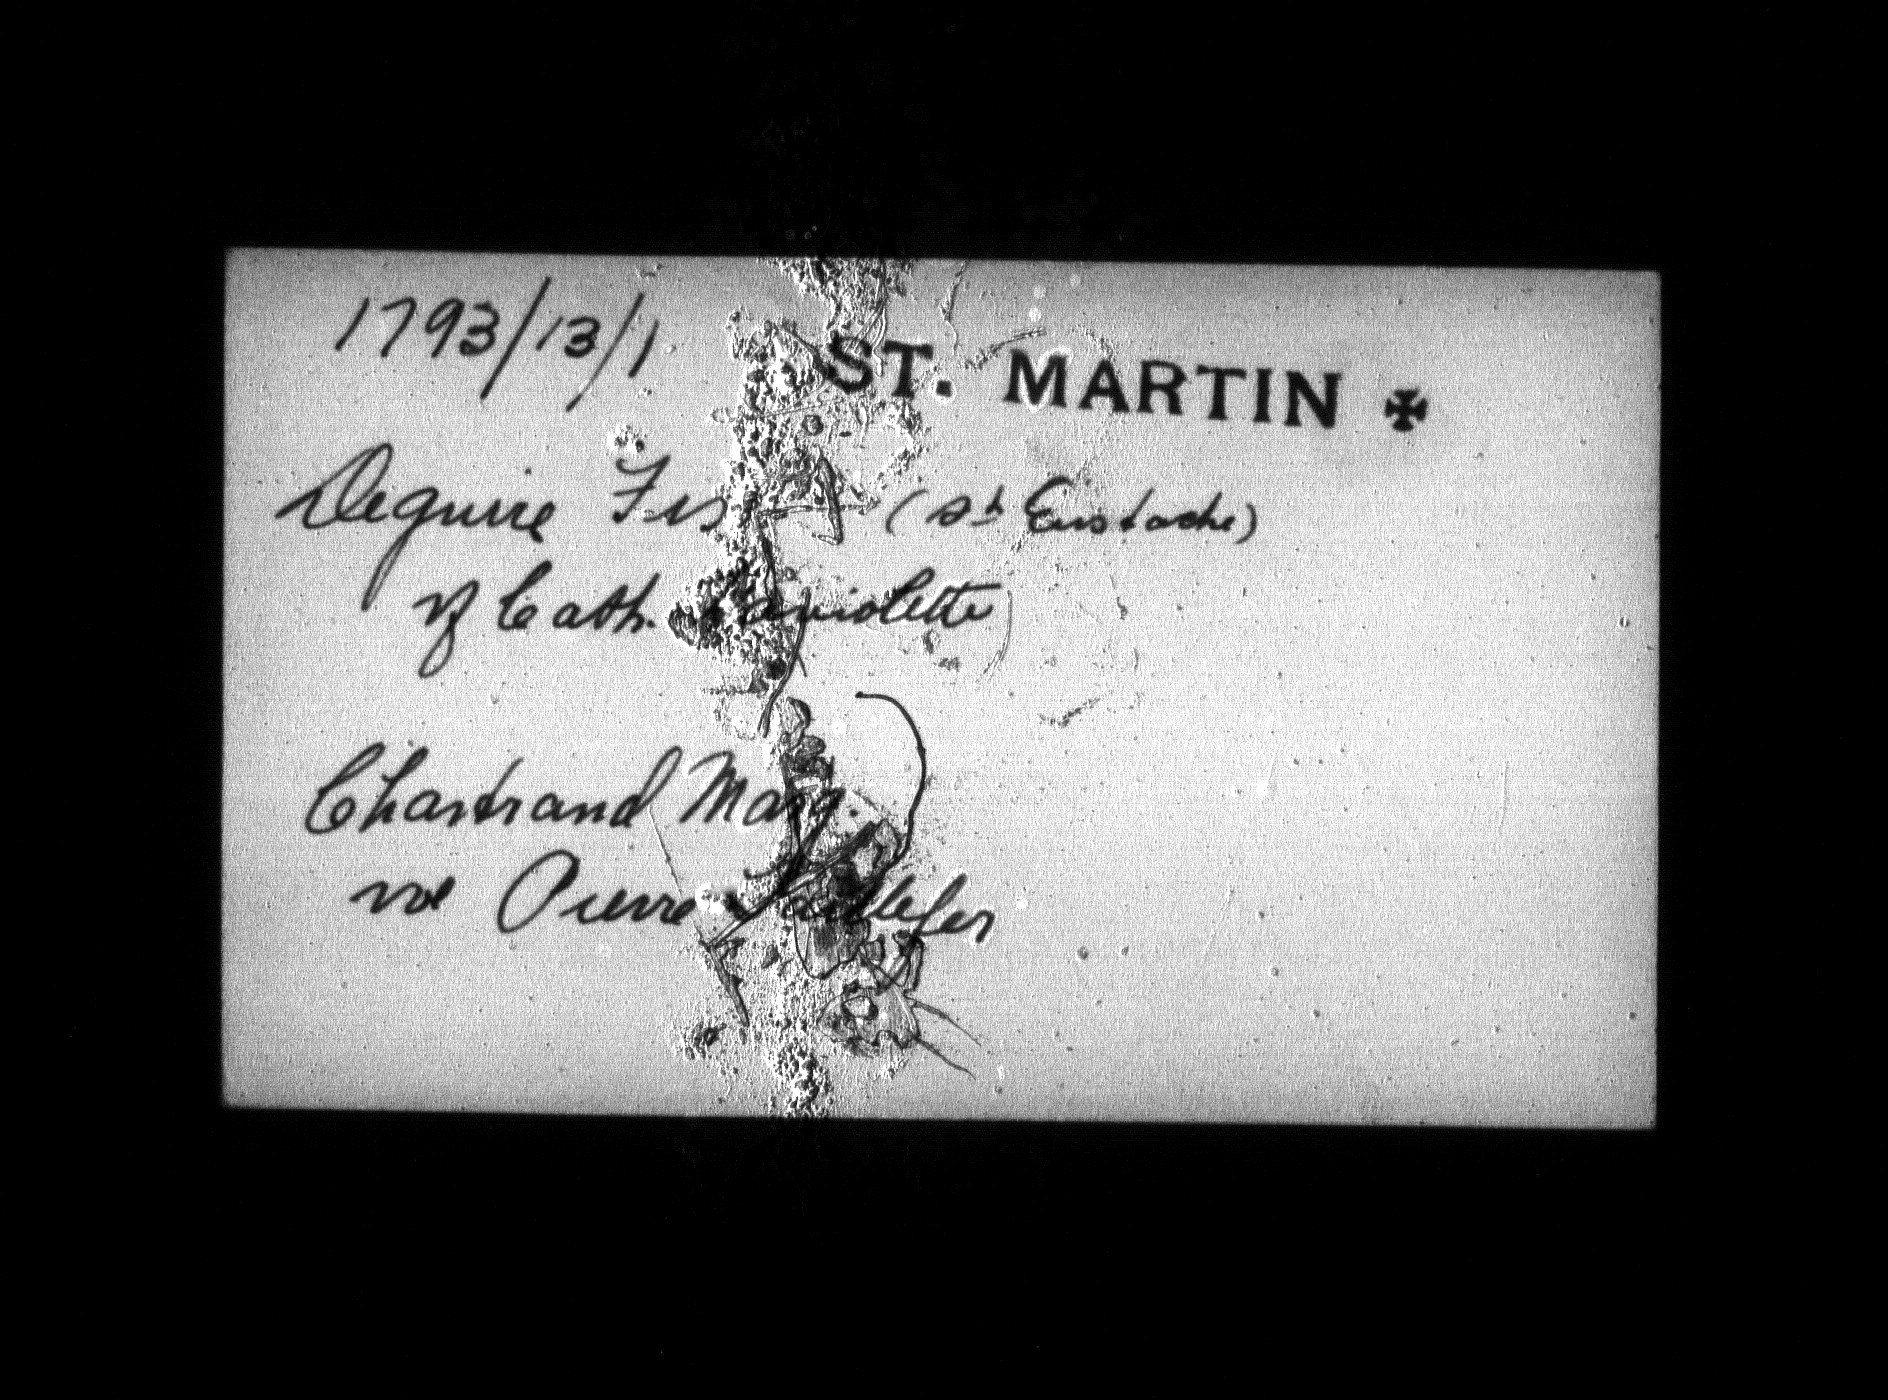 1793/13/1
ST. MARTIN ✠
Deguire Frs (St Eustache)
vf Cath. Laviolette
Chartrand Marg.
vve Pierre Taillefer